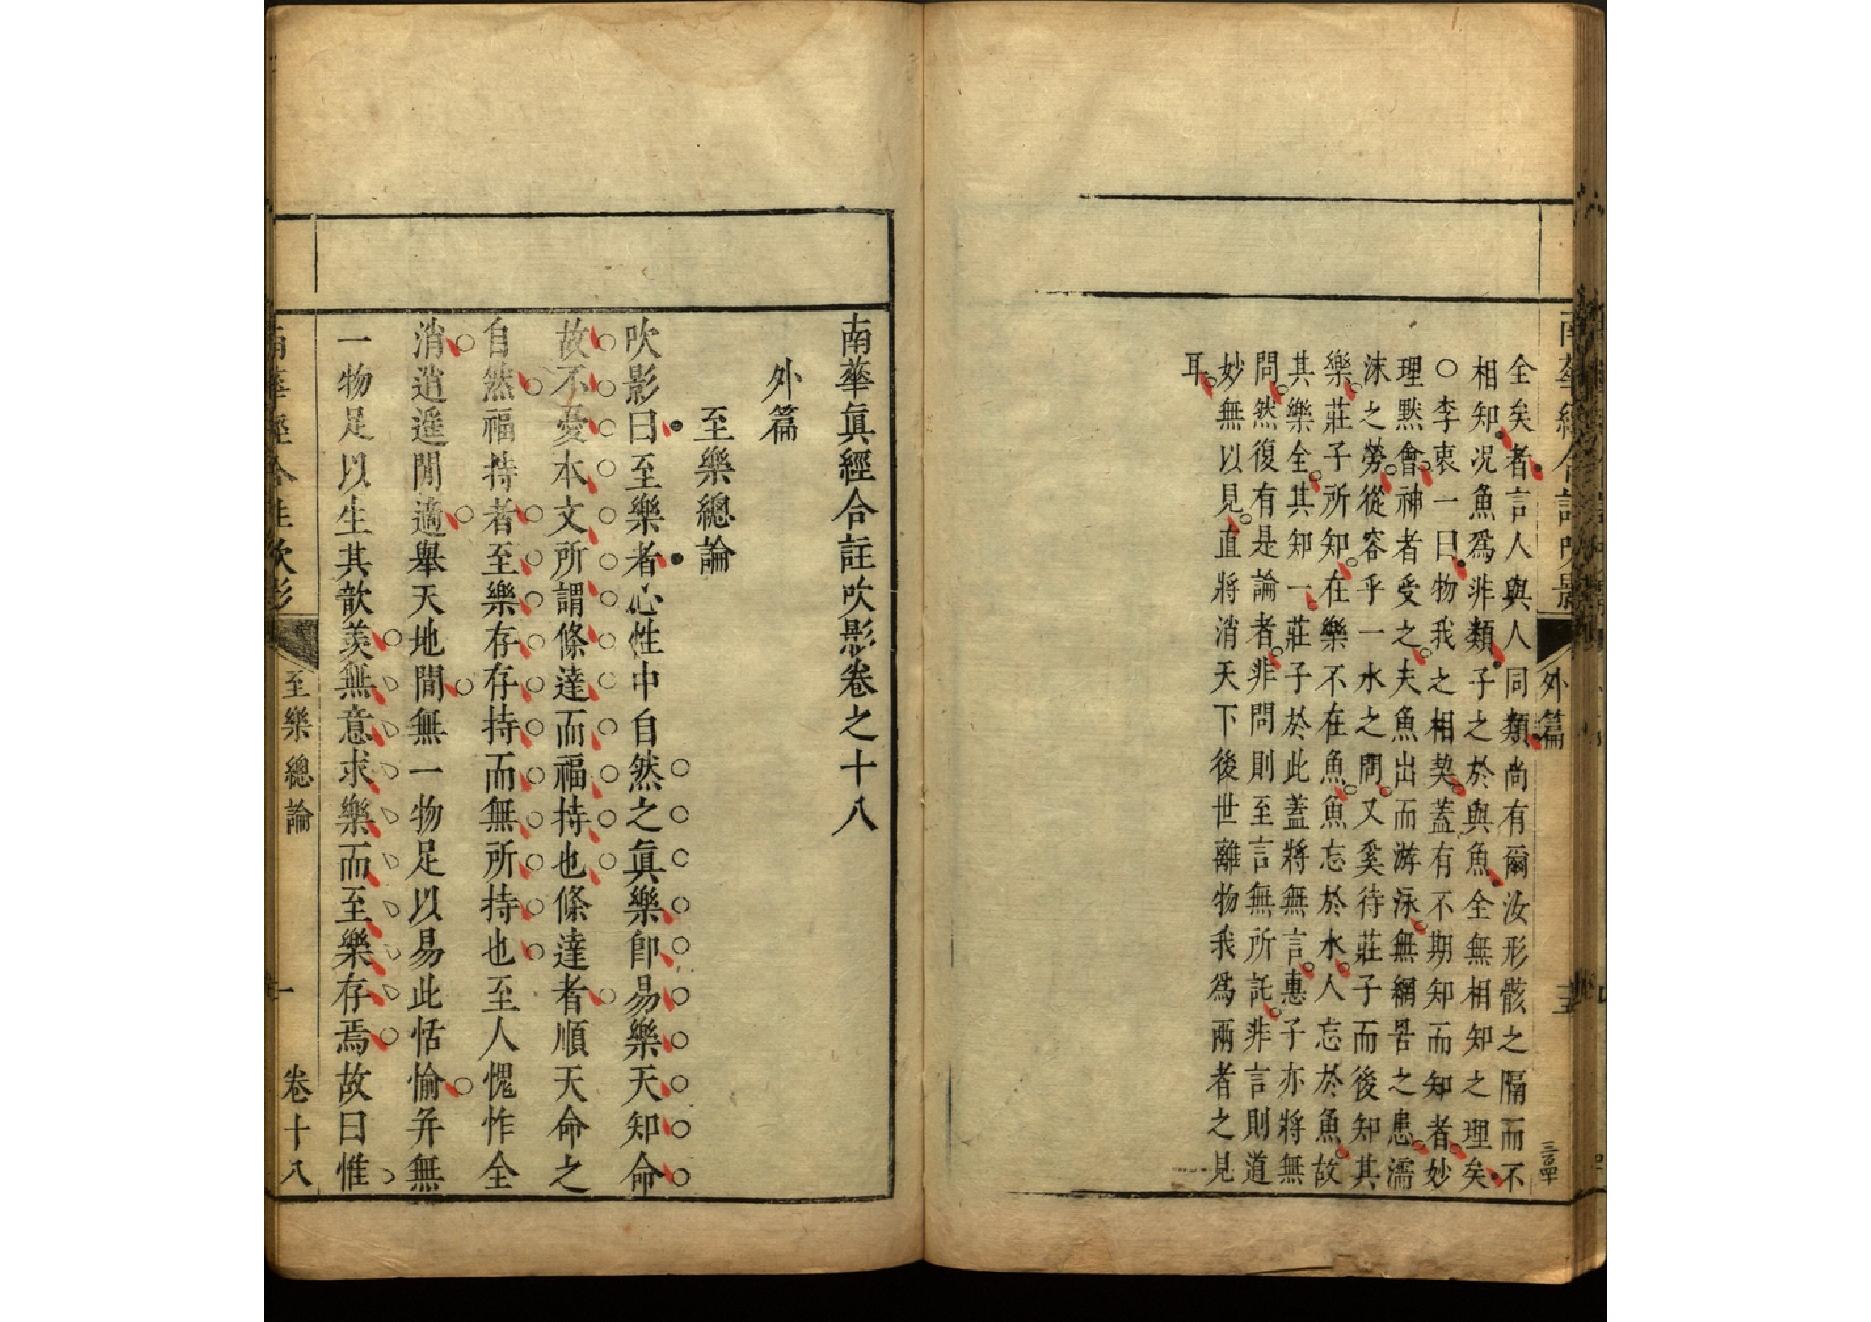 全矣者言人與人同類尚有爾汝形骸之隔而不
相知况魚爲非類子之於與魚全無相知之理矣
○李衷一曰物我之相契蓋有不期知而知者妙
理默會神者受之夫魚出而游泳無網罟之患濡
沫之勞從容乎一水之間又奚待莊子而後知其
樂莊子所知在樂不在魚魚忘於水人忘於魚故
其樂全其知一莊子於此蓋將無言惠子亦將無
問然復有是論者非問則至言無所託非言則道
妙無以見直將消天下後世離物我爲兩者之見
耳
外篇
南華眞經合註吹影卷之十八
外篇
至樂總論
吹影曰至樂者心性中自然之眞樂卽易樂天知命
故不憂本文所謂條達而福持也條達者順天命之
自然福持者至樂存存持而無所持也至人愧怍全
消逍遥閒適舉天地間無一物足以易此恬愉弃無
一物足以生其歆羡無意求樂而至樂存焉故曰惟
至樂總論 一 卷十八